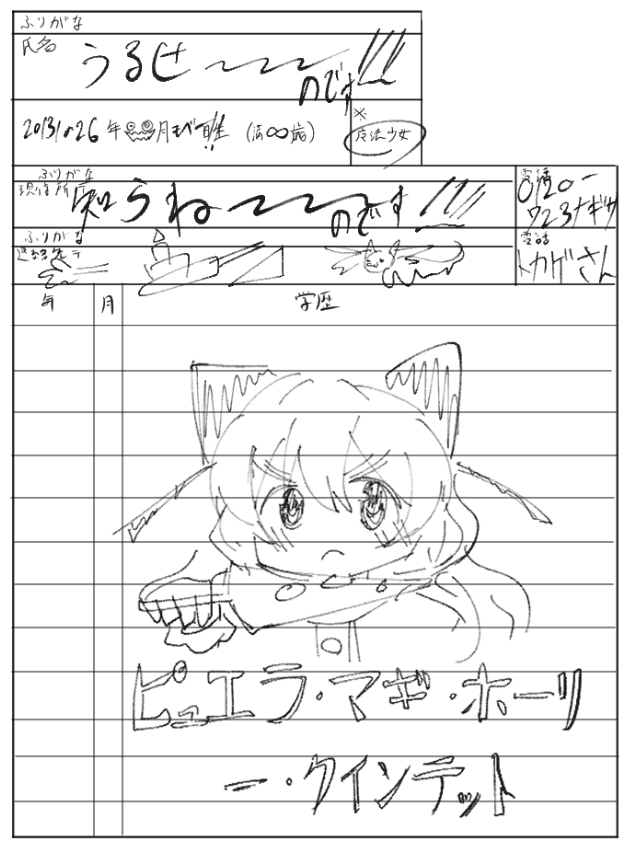 ふりがな
氏名
うるせ〜〜〜のです!!!
年
月
※
魔法少女
ふりがな
現住所
知らね〜〜〜のです!!!
電話
0120-
723ナギサ
ふりがな
連絡先
電話
トカゲさん
年 月 学歴
ピュエラ・マギ・ホーリ
ー・クインテット